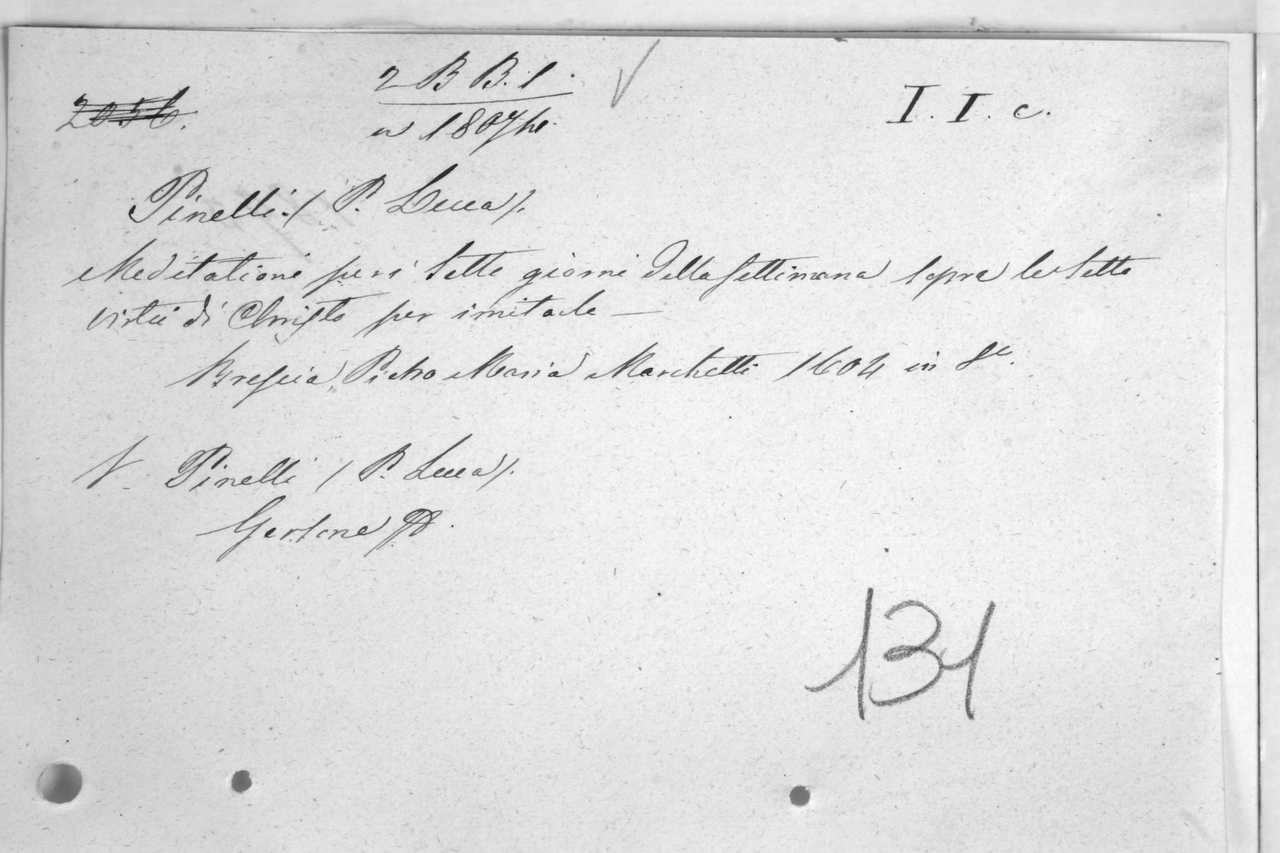 2056.
2 B B. 1.
I. I. c.
Pinelli. (P. Lucca).
Meditationi per i sette giorni della settimana sopra le sette
virtù di Christo per imitarle —
Brescia, Pietro Maria Marchetti 1604 in 8°.
V. Pinelli (P. Lucca).
131